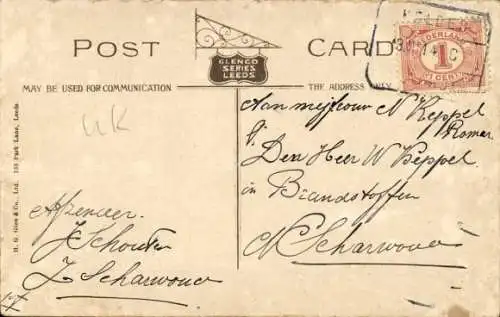 POST CARD
GLENCO
SERIES
LEEDS
NEDERLAND
1
CENT
MAY BE USED FOR COMMUNICATION
THE ADDRESS ONLY
UK
Aan mejufvrouw N Keppel
Den Heer W Keppel
in Brandstoffen
N Scharwoude
Afzender
J Schouten
Z Scharwoude
H. G. Glen & Co., Ltd. 155 Park Lane, Leeds